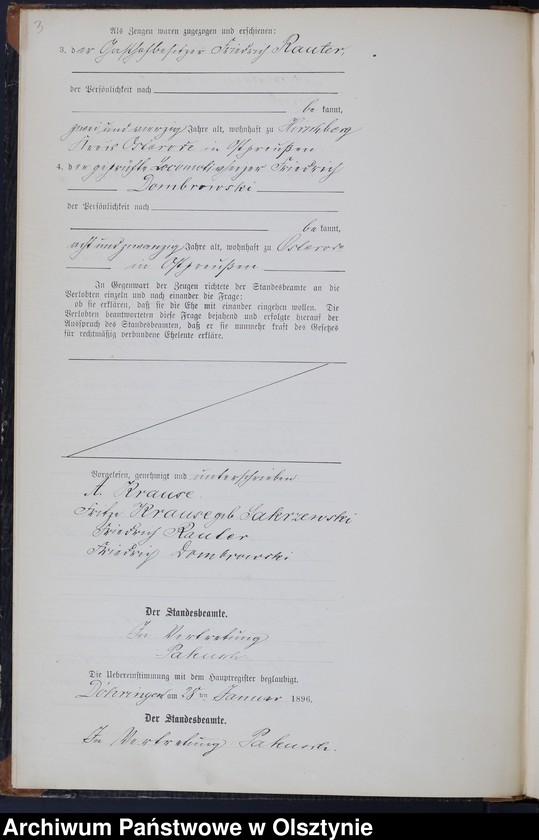 3
Als Zeugen waren zugezogen und erschienen:
3. der Gasthofbesitzer Friedrich Rauter,
der Persönlichkeit nach
bekannt,
zwei und vierzig Jahre alt, wohnhaft zu Hirschberg
Kreis Osterode in Ostpreußen
4. der geprüfte Locomotivheizer Friedrich
Dombrowski
der Persönlichkeit nach
bekannt,
acht und zwanzig Jahre alt, wohnhaft zu Osterode
in Ostpreußen
In Gegenwart der Zeugen richtete der Standesbeamte an die
Verlobten einzeln und nach einander die Frage:
ob sie erklären, daß sie die Ehe mit einander eingehen wollen. Die
Verlobten beantworteten diese Frage bejahend und erfolgte hierauf der
Ausspruch des Standesbeamten, daß er sie nunmehr kraft des Gesetzes
für rechtmäßig verbundene Eheleute erkläre.
Vorgelesen, genehmigt und unterschrieben
A. Krause.
Krause geb. Sakrzewski
Friedrich Rauter
Friedrich Dombrowski
Der Standesbeamte.
In Vertretung
Die Uebereinstimmung mit dem Hauptregister beglaubigt.
Döhringen am Januar 1896.
Der Standesbeamte.
In Vertretung
Archiwum Państwowe w Olsztynie